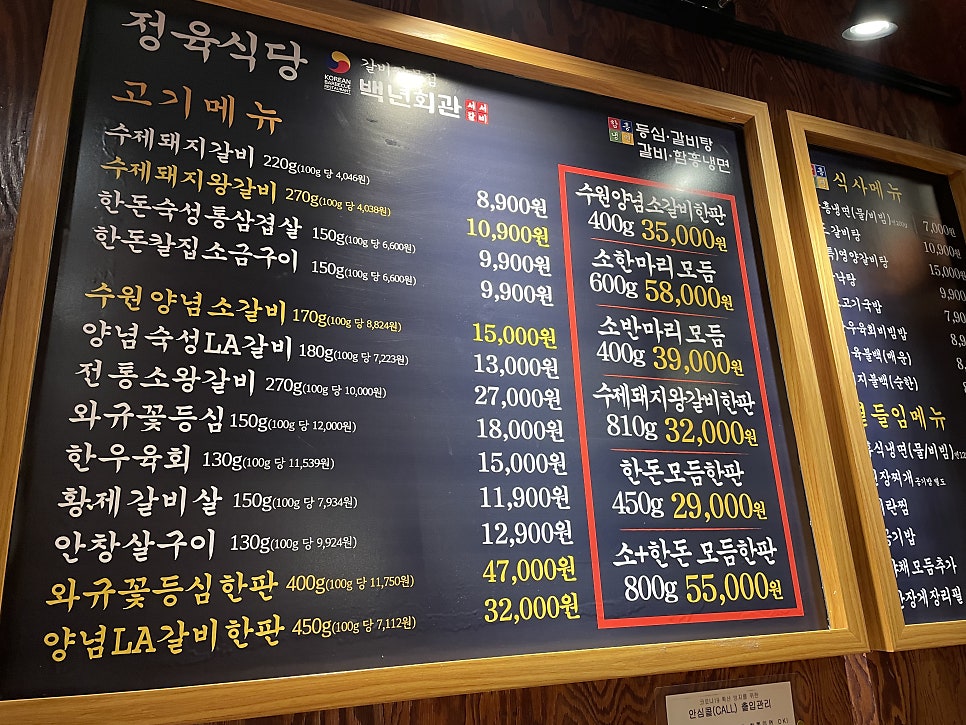 정육식당
KOREAN
BARBECUE
RESTAURANT
백년회관
서서
갈비
고기메뉴
수제돼지갈비 220g(100g 당 4,046원) 8,900원
수제돼지왕갈비 270g(100g 당 4,038원) 10,900원
한돈숙성통삼겹살 150g(100g 당 6,600원) 9,900원
한돈칼집소금구이 150g(100g 당 6,600원) 9,900원
수원양념소갈비 170g(100g 당 8,824원) 15,000원
양념숙성LA갈비 180g(100g 당 7,223원) 13,000원
전통소왕갈비 270g(100g 당 10,000원) 27,000원
와규꽃등심 150g(100g 당 12,000원) 18,000원
한우육회 130g(100g 당 11,539원) 15,000원
황제갈비살 150g(100g 당 7,934원) 11,900원
안창살구이 130g(100g 당 9,924원) 12,900원
와규꽃등심한판 400g(100g 당 11,750원) 47,000원
양념LA갈비한판 450g(100g 당 7,112원) 32,000원
함흥
냉면
등심·갈비탕
갈비·함흥냉면
수원양념소갈비한판
400g 35,000원
소한마리 모듬
600g 58,000원
소반마리 모듬
400g 39,000원
수제돼지왕갈비한판
810g 32,000원
한돈모듬한판
450g 29,000원
소+한돈 모듬한판
800g 55,000원
식사메뉴
흥냉면(물/비빔) 7,000원
갈비탕 10,900원
영양갈비탕 15,000원
낙탕 9,900
고기국밥 7,90
우육회비빔밥 8,9
육불백(매운) 8,
지불백(순한)
곁들임메뉴
식냉면(물/비빔)
된장찌개 공기밥 별도
란찜
공기밥
야채 모듬추가
간장게장리필
코로나19 확산 방지를 위한
안심콜(CALL) 출입관리